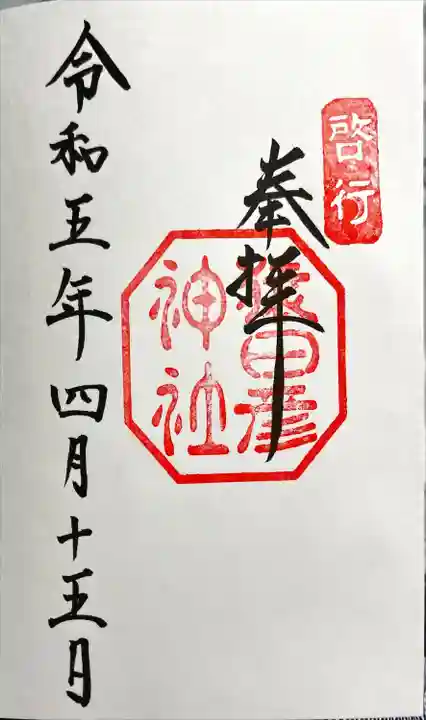 啓行
奉拝
猿田彦
神社
令和五年四月十五日